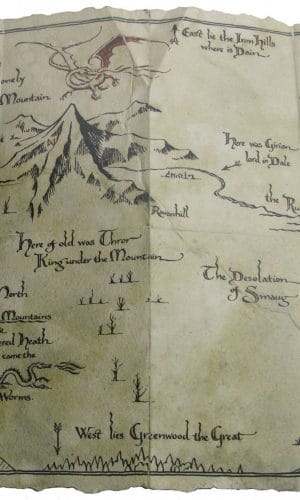 East lie the Iron Hills
where is Dain
onely
Mountain.
Here was Girion
lord in Dale
the Ru
Ravenhill
Here of old was Thror
King under the Mountain
The Desolation
of Smaug
North
Mountains
ered Heath
came the
Worms.
West lies Greenwood the Great